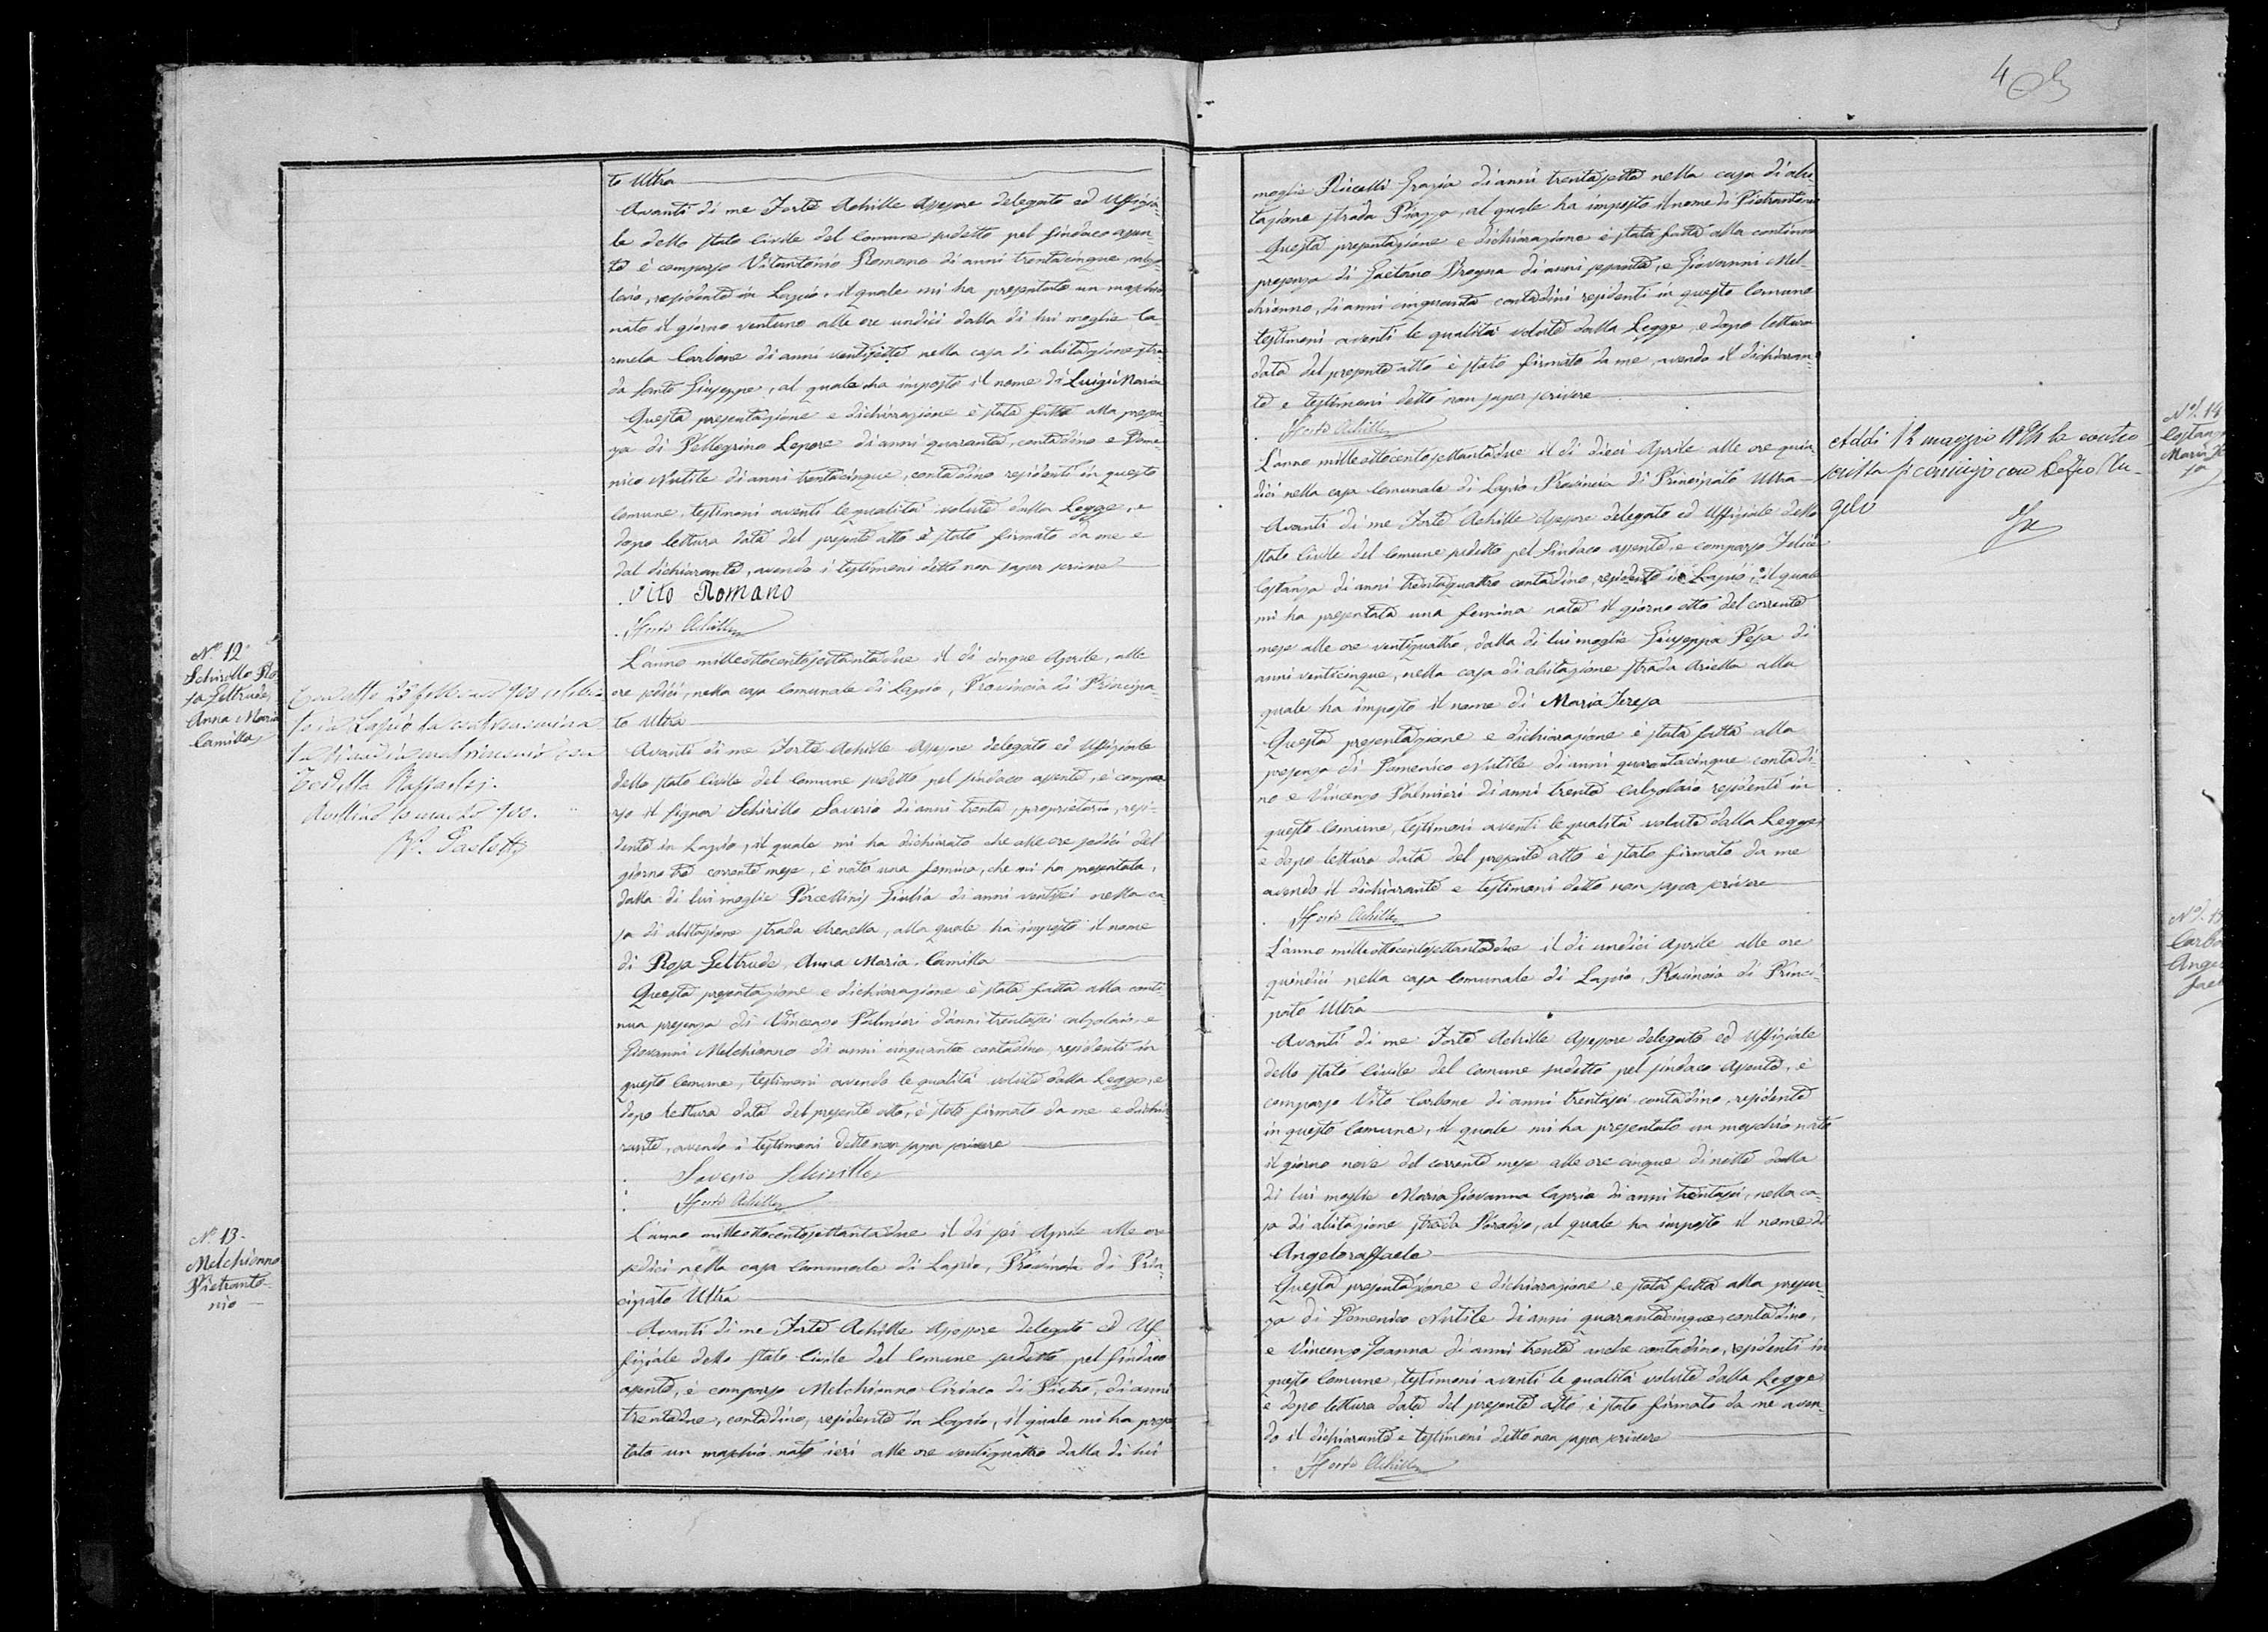 4
to Ultra
Avanti di me Forte Achille Assessore delegato ed Uffizia-
le dello stato Civile del Comune sudetto pel sindaco assen-
te è comparso Vitantonio Romano di anni trentacinque, calzo-
laio, residente in Lapio, il quale mi ha presentato un maschio
nato il giorno ventuno alle ore undici dalla di lui moglie Ca-
rmela Carbone di anni ventisette nella casa di abitazione stra-
da Santo Giuseppe, al quale ha imposto il nome di Luigi Maria
Questa presentazione e dichiarazione è stata fatta alla presen-
za di Pellegrino Lepore di anni quaranta, contadino e Dome-
nico Nutile di anni trentacinque, contadino residenti in questo
Comune, testimoni aventi le qualità volute dalla Legge, e
dopo lettura data del presente atto è stato firmato da me e
dal dichiarante, avendo i testimoni detto non saper scrivere
Vito Romano
Forte Achille
N.º 12
Schirillo Ro-
sa Geltrude,
Anna Maria
Camilla
L'anno milleottocentosettantadue il di cinque Aprile, alle
ore sedici, nella casa Comunale di Lapio, Provincia di Principa-
to Ultra
Avanti di me Forte Achille Assessore delegato ed Uffiziale
dello stato Civile del Comune sudetto pel sindaco assente, è compar-
so il signor Schirillo Saverio di anni trenta, proprietario, resi-
dente in Lapio, il quale mi ha dichiarato che alle ore sedici del
giorno tre corrente mese, è nata una femina, che mi ha presentata,
dalla di lui moglie Porcellini Giulia di anni ventisei nella ca-
sa di abitazione strada Arenella, alla quale ha imposto il nome
di Rosa Geltrude, Anna Maria, Camilla
Questa presentazione e dichiarazione è stata fatta alla conti-
nua presenza di Vincenzo Palmieri d'anni trentasei calzolaio, e
Giovanni Melchionno di anni cinquanta contadino, residenti in
questo Comune, testimoni avendo le qualità volute dalla Legge, e
dopo lettura data del presente atto, è stato firmato da me e dichia-
rante, avendo i testimoni detto non saper scrivere
Saverio Schirillo
Forte Achille
N. 13.
Melchionno
Pietranto-
nio
L'anno milleottocentosettantadue il di sei Aprile alle ore
sedici nella casa Comunale di Lapio, Provincia di Prin-
cipato Ultra
Avanti di me Forte Achille Assessore delegato ed Uf-
fiziale dello stato Civile del Comune sudetto pel sindaco
assente, è comparso Melchionno Ciriaco di Pietro, di anni
trentadue, contadino, residente in Lapio, il quale mi ha presen-
tato un maschio nato ieri alle ore ventiquattro dalla di lui
moglie Grazia di anni trentasette nella casa di abi-
tazione strada Piazza, al quale ha imposto il nome di Pietrantonio
Questa presentazione e dichiarazione è stata fatta alla continua
presenza di Gaetano di anni sessanta, e Giovanni Mel-
chionno, di anni cinquanta contadini residenti in questo Comune
testimoni aventi le qualità volute dalla Legge, e dopo lettura
data del presente atto è stato firmato da me, avendo il dichiaran-
te e testimoni detto non saper scrivere
Forte Achille
N.º 14
Costanza
Maria Te
sa
L'anno milleottocentosettantadue il di dieci Aprile alle ore quin-
dici nella casa Comunale di Lapio Provincia di Principato Ultra
Avanti di me Forte Achille Assessore delegato ed Uffiziale dello
stato Civile del Comune sudetto pel Sindaco assente, e comparso Felice
Costanza di anni trentaquattro contadino, residente in Lapio, il quale
mi ha presentata una femina nata il giorno otto del corrente
mese alle ore ventiquattro, dalla di lui moglie Giuseppa Pesa di
anni venticinque, nella casa di abitazione strada Ariella alla
quale ha imposto il nome di Maria Teresa
Questa presentazione e dichiarazione è stata fatta alla
presenza di Domenico Nutile di anni quarantacinque contadi-
no e Vincenzo Palmieri di anni trenta calzolaio residenti in
questo Comune, testimoni aventi le qualità volute dalla Legge,
e dopo lettura data del presente atto è stato firmato da me
avendo il dichiarante e testimoni detto non saper scrivere
Forte Achille
Addì 12 maggio la contro
scritta si coniugò con
gelo
L'anno milleottocentosettantadue il di undici Aprile alle ore
quindici nella casa Comunale di Lapio, Provincia di Princi-
pato Ultra
Avanti di me Forte Achille Assessore delegato ed Uffiziale
dello stato Civile del Comune sudetto pel sindaco Assente, è
comparso Vito Carbone di anni trentasei contadino, residente
in questo Comune, il quale mi ha presentato un maschio nato
il giorno nove del corrente mese alle ore cinque di notte dalla
di lui moglie Maria Giovanna Caprio di anni trentasei, nella ca-
sa di abitazione strada Paradiso, al quale ha imposto il nome di
Angeloraffaele
Questa presentazione e dichiarazione e stata fatta alla presen-
za di Domenico Nutile di anni quarantacinque, contadino,
e Vincenzo Joanna di anni trenta anche contadino, residenti in
questo Comune, testimoni aventi le qualità volute dalla Legge
e dopo lettura data del presente atto, è stato firmato da me aven-
do il dichiarante e testimoni detto non saper scrivere
Forte Achille